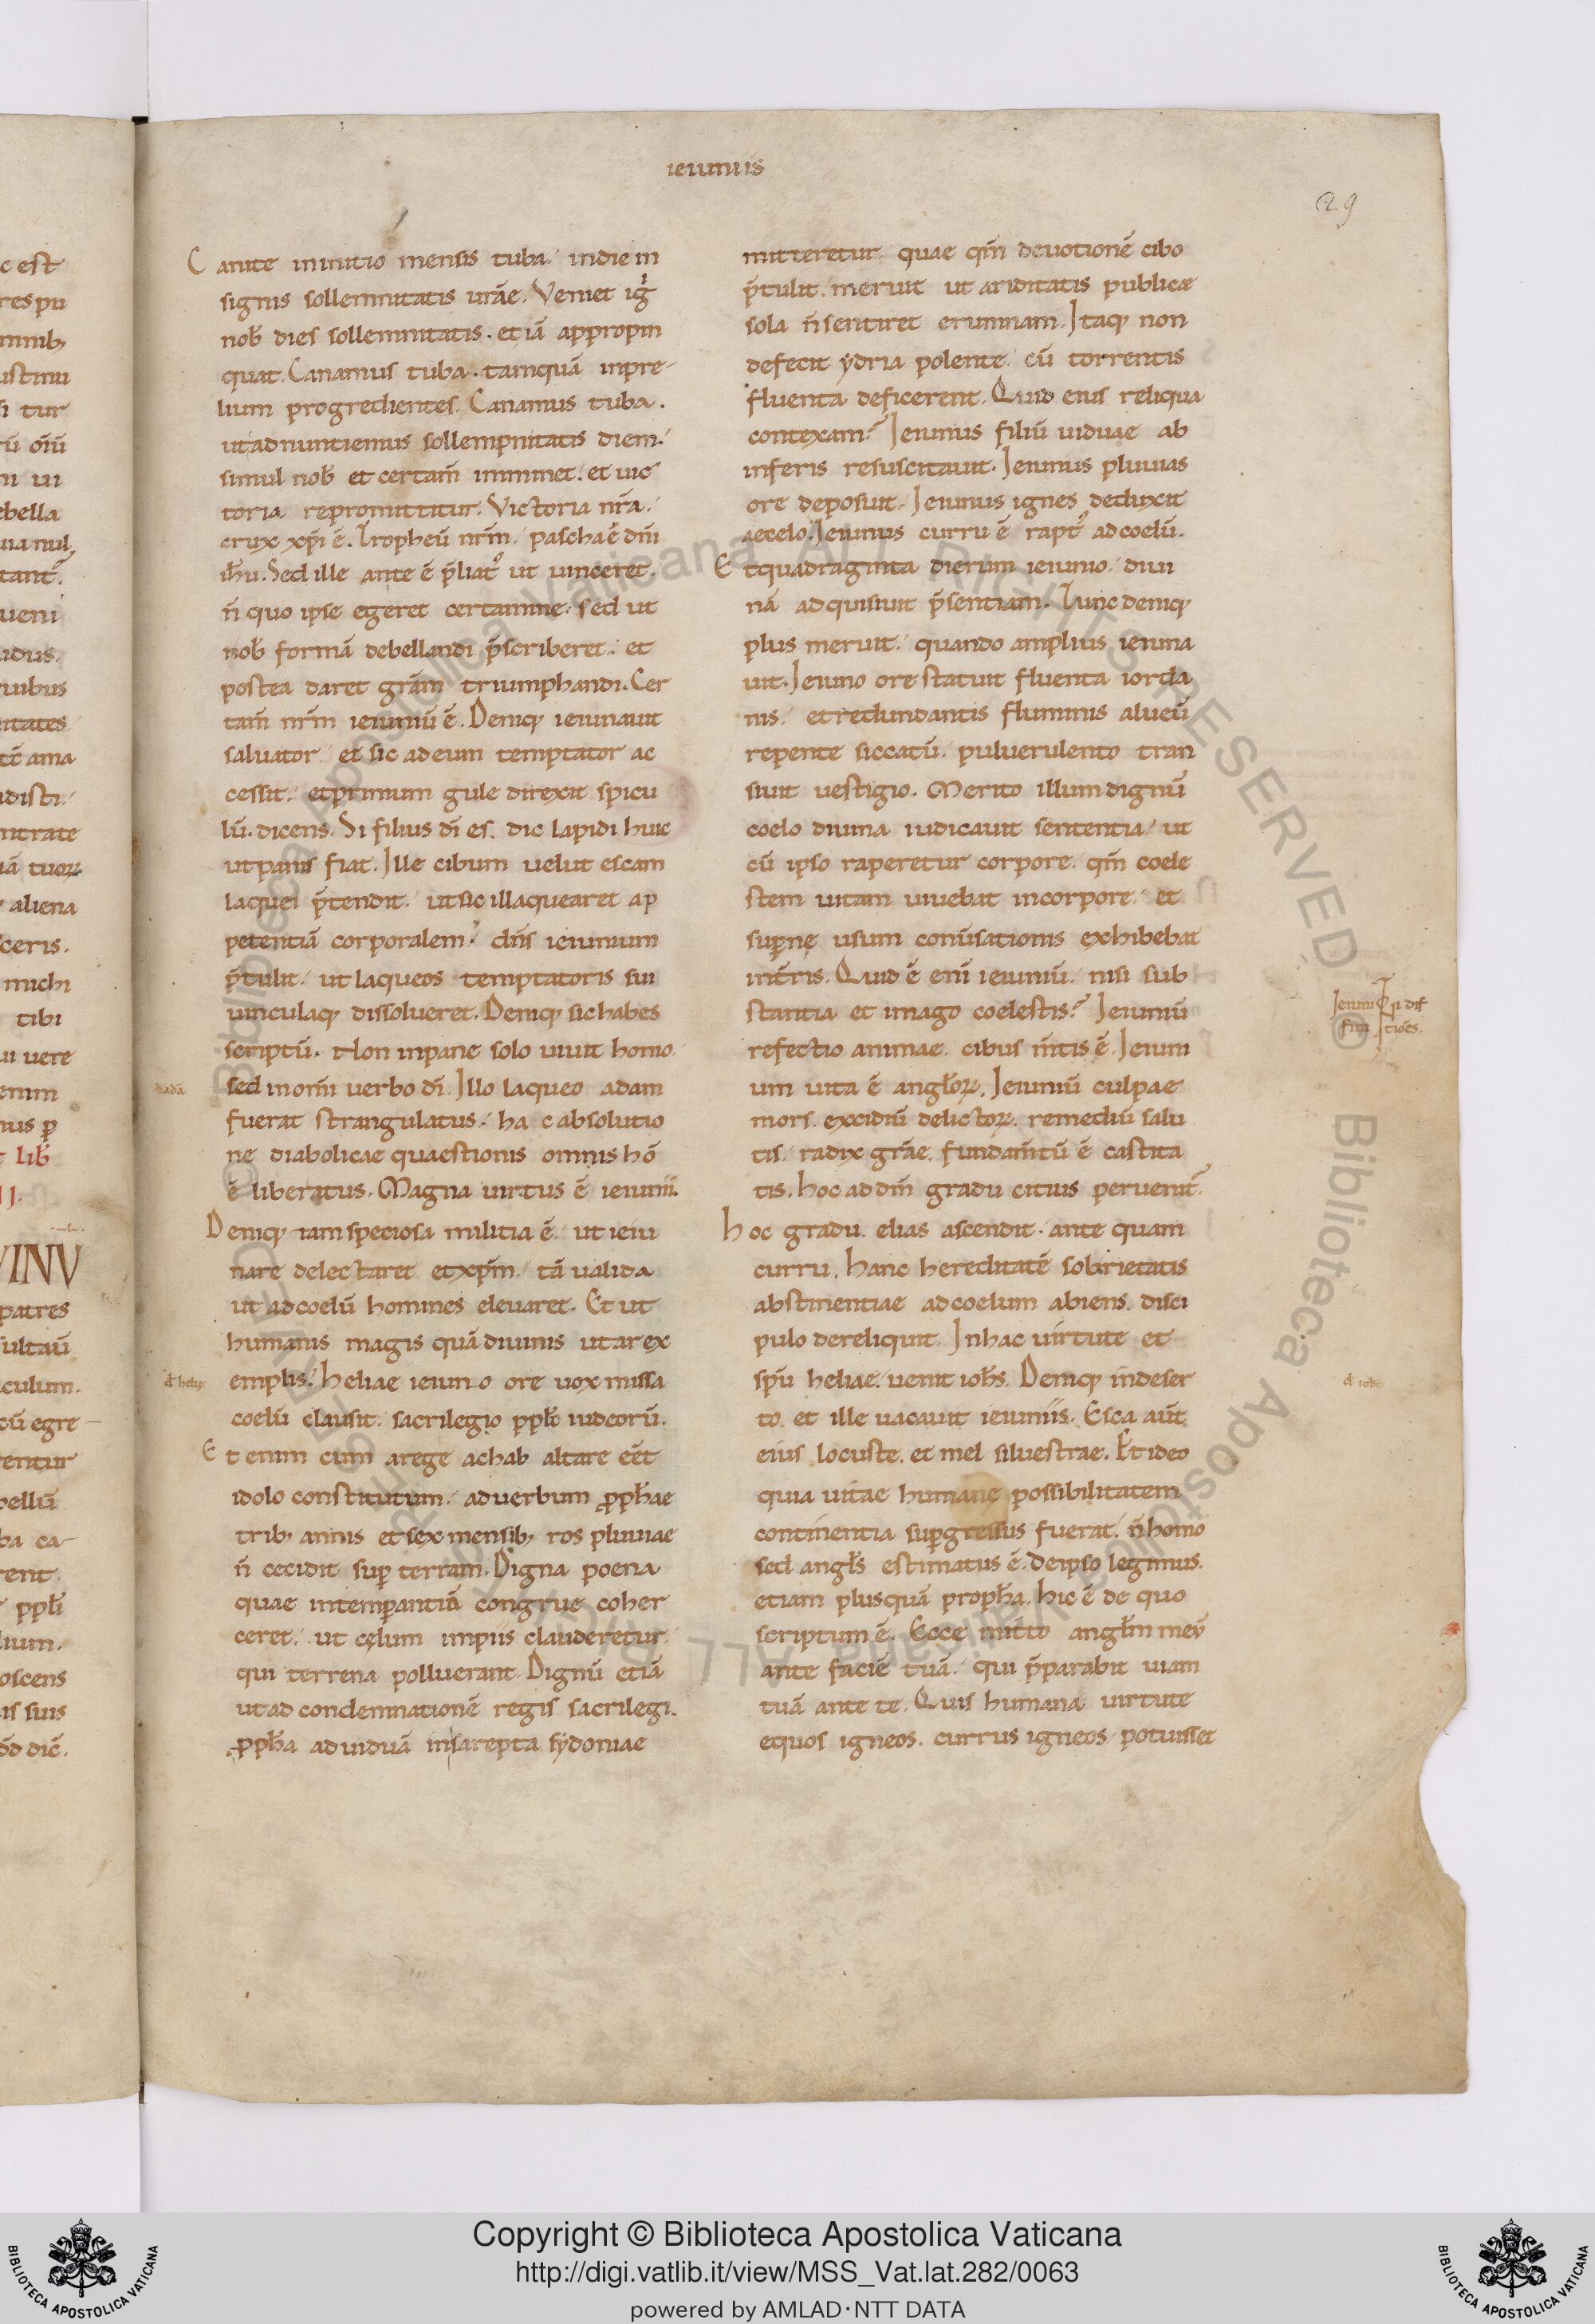 ieiuniis
29
Canite ininitio mensis tuba. indie in
signis sollemnitatis urãe. Veniet igi͛
nob̃ dies sollemnitatis. et iã appropin
quat. Canamus tuba. tamquã inpre-
lium progredientes. Canamus tuba.
utadnuntiemus sollempnitatis diem.
simul nob̃ et certam̃ imminet. et uic
toria repromittitur. Victoria nr̃a.
crux xp̃i ẽ. Tropheũ nr̃m. pascha ẽ dñi
ih̃u. Sed ille ante ẽ p̃liat᷒ ut uinceret.
ñ quo ipse egeret certamine. sed ut
nob̃ formã debellandi p̃scriberet. et
postea daret grãm triumphandi. Cer
tam̃ nr̃m ieiuniũ ẽ. Deniq; ieiunauit
saluator et sic adeum temptator ac
cessit. etprimum gule direxit spicu
lũ. dicens. Si filius dĩ es. dic lapidi huic
utpanis fiat. Ille cibum uelut escam
laquei p̃tendit. utsic illaquearet ap
petentiã corporalem. dñs ieiunium
p̃tulit. ut laqueos temptatoris sui
uinculaq; dissolueret. Deniq; sic habes
scriptũ. Non inpane solo uiuit homo.
sed inom̃i uerbo dĩ. Illo laqueo adam
fuerat strangulatus. hac absolutio
ne diabolicae quaestionis omnis hõ
ẽ liberatus. Magna uirtus ẽ ieiunii.
Deniq; tam speciosa militia ẽ. ut ieiu
nare delectaret etxp̃m. tã ualida
ut adcoelũ homines eleuaret. Et ut
humanis magis quã diuinis utar ex
emplis. heliae ieiuno ore uox missa
coelũ clausit. sacrilegio pp̃li iudeorũ.
Et enim cum arege achab altare eẽt
idolo constitutum. aduerbum p̱ph̃ae
trib; annis etsex mensib; ros pluuiae
ñ cecidit sup̱ terram. Digna poena
quae intemp̱antiã congrue coher
ceret. ut cęlum impiis clauderetur.
qui terrena polluerant. Dignũ etiã
utad condemnationẽ regis sacrilegi.
p̱ph̃a aduiduã insarepta sydoniae
mitteretur. quae qm̃ deuotionẽ cibo
p̃tulit. meruit ut ariditatis publicæ
sola ñ sentiret erumnam. Itaq; non
defecit ydria polente. cũ torrentis
fluenta deficerent. Quid eius reliqua
contexam? Ieiunus filiũ uiduae ab
inferis resuscitauit. Ieiunus pluuias
ore deposuit. Ieiunus ignes deduxit
aecelo. Ieiunus curru ẽ rapt᷒ adcoelũ.
Et quadraginta dierum ieiunio. diui
nã adquisiuit p̃sentiam. Tunc deniq;
plus meruit. quando amplius ieiuna
uit. Ieiuno ore statuit fluenta iorda
nis. et redundantis fluminis alueũ
repente siccatũ. puluerulento tran
siuit uestigio. Merito illum dignũ
coelo diuina iudicauit sententia. ut
cũ ipso raperetur corpore. qm̃ coele
stem uitam uiuebat incorpore. et
sup̱nę usum conũsationis exhibebat
int̃ris. Quid ẽ enĩ ieiuniũ. nisi sub
stantia et imago coelestis? Ieiuniũ
refectio animae. cibus m̃tis ẽ. Ieiuni
um uita ẽ angl̃oꝝ. Ieiuniũ culpae
mors. excidiũ delictoꝝ. remediũ salu
tis. radix grãe. fundam̃tũ ẽ castita
tis. hoc ad dm̃ gradu citius peruenit̃.
hoc gradu. elias ascendit. ante quam
curru. hanc hereditatẽ sobrietatis
abstinentiae adcoelum abiens. disci
pulo dereliquit. Inhac uirtute et
sp̃u heliae. uenit ioh̃s. Deniq; indeser
to et ille uacauit ieiuniis. Esca aut̃
eius locuste. et mel siluestrae. Et ideo
quia uitae humanę possibilitatem
continentia sup̱gressus fuerat. ñ homo
sed angl̃s estimatus ẽ. Deipso legimus.
etiam plusquã proph̃a. hic ẽ de quo
scriptum ẽ. Ecce mitto angl̃m meũ
ante faciẽ tuã. qui p̃parabit uiam
tuã ante te. Quis humana uirtute
equos igneos. currus igneos potuisset
Copyright © Biblioteca Apostolica Vaticana
http://digi.vatlib.it/view/MSS_Vat.lat.282/0063
powered by AMLAD·NTT DATA